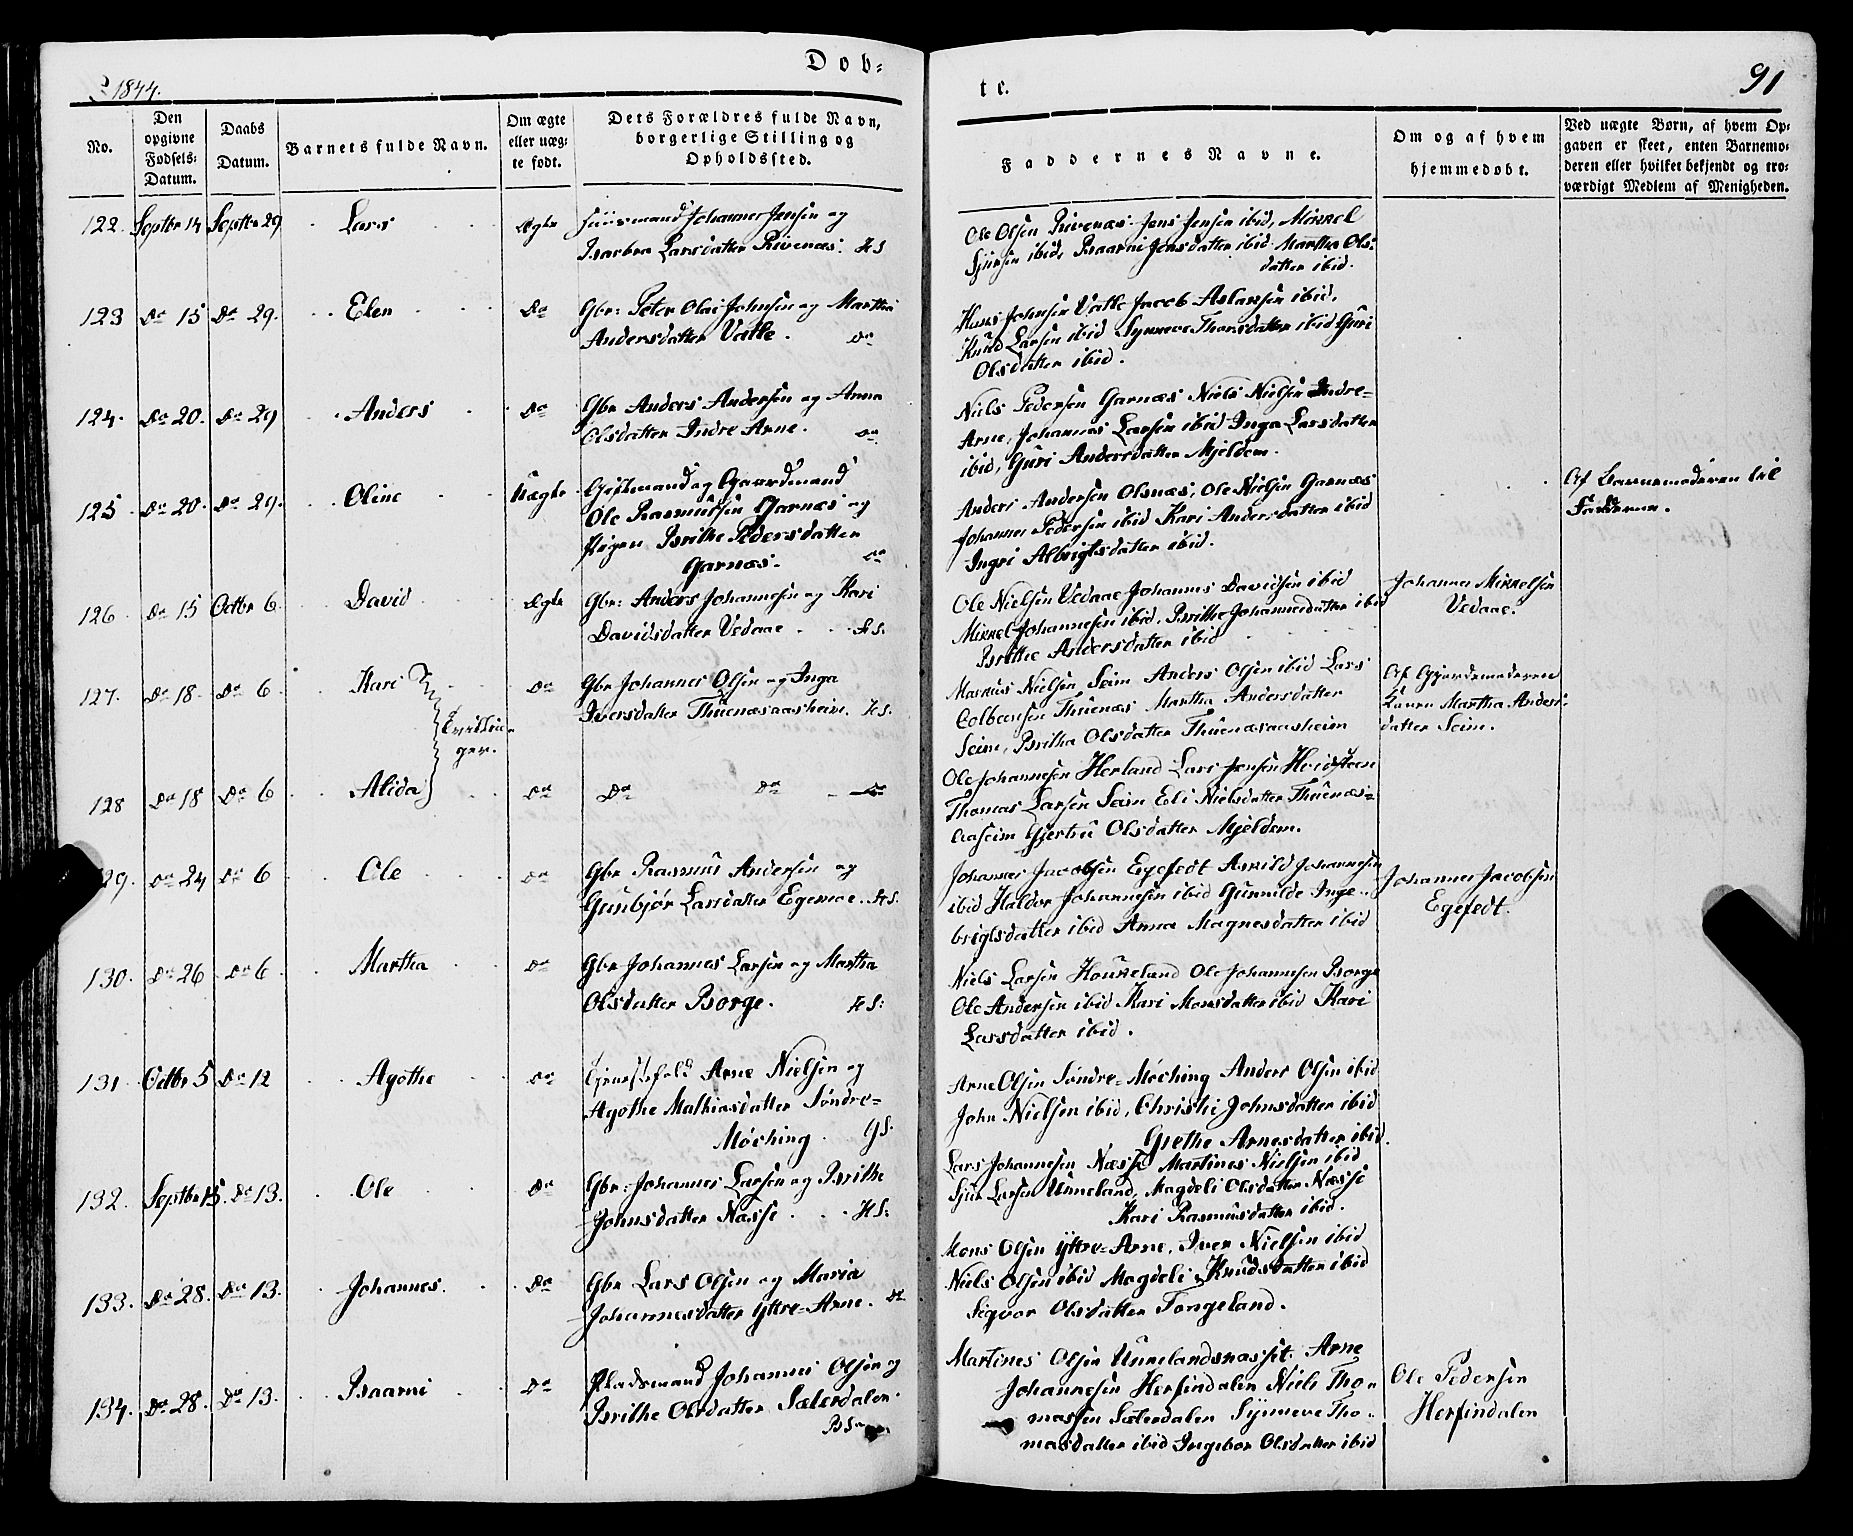 Dob=
te.
91
1844.
No.
Den opgivne Fødsels-Datum.
Daabs Datum.
Barnets fulde Navn.
Om ægte eller uægte født.
Dets Forældres fulde Navn, borgerlige Stilling og Opholdssted.
Faddernes Navne.
Om og af hvem hjemmedøbt.
Ved uægte Børn, af hvem Opgaven er skeet, enten Barnemoderen eller hvilket bekjendt og troværdigt Medlem af Menigheden.
122. Septbr 14 Septbr 29 Lars Ægte Huusmand Johannes Jensen og
Barbra Larsdatter Rivenæs. HS
Ole Olsen Rivenæs Jens Jensen ibid, Mikkel
Sjursen ibid, Baarni Jensdatter ibid Martha Ols-
datter ibid.
123 Do 15 Do 29. Elen Do Gbr: Peter Olai Johnsen og Martha
Andersdatter Vatle. Do
Hans Johnsen Vatle Jacob Aslaksen ibid,
Knud Larsen ibid Synneve Thorsdatter ibid Guri
Olsdatter ibid.
124. Do 20. Do 29 Anders Do Gbr Anders Andersen og Anna
Olsdatter Indre Arne. Do
Niels Pedersen Garnæs Niels Nielsen Indre-
Arne, Johannes Larsen ibid Inga Larsdatter
ibid, Guri Andersdatter Mjeldem.
125 Do 20. Do 29. Oline Uægte Giftmand og Gaardmand
Ole Rasmussen Garnæs og
Pigen Brithe Pedersdatter
Garnæs. Do
Anders Andersen Olsnæs, Ole Nielsen Garnæs
Johannes Pedersen ibid Kari Andersdatter ibid
Ingri Albrigtsdatter ibid.
Af Barnemoderen til
Fadderne.
126 Do 15 Octbr 6. David Ægte Gbr: Anders Johannesen og Kari
Davidsdatter Vedaae HS.
Ole Nielsen Vedaae Johannes Davidsen ibid
Mikkel Johannesen ibid, Brithe Johannesdatter ibid
Brithe Andersdatter ibid
Johannes Mikkelsen
Vedaae.
127. Do 18 Do 6 Kari Do Gbr Johannes Olsen og Inga
Iversdatter Thuenæsaasheim. HS.
Tvillin-
ger.
Markus Nielsen Seim Anders Olsen ibid Lars
Colbensen Thuenæs Martha Andersdatter
Seim, Britha Olsdatter Thuenæsaasheim
Af Gjordemoderen
Konen Martha Anders-
datter Seim.
128 Do 18 Do 6 Alida Do Do Do Do
Ole Johannesen Herland Lars Jensen
Thomas Larsen Seim Eli Nielsdatter Thuenæs-
aaseim Gjertru Olsdatter Mjeldem.
129. Do 24 Do 6 Ole Do Gbr Rasmus Andersen og
Gunbjør Larsdatter Egemoe. HS.
Johannes Jacobsen Egefedt Johannesen
ibid Haldor Johannesen ibid Gunnilde Inge-
brigtsdatter ibid Anna Magnesdatter ibid
Johannes Jacobsen
Egefedt.
130. Do 26 Do 6 Martha Do Gbr Johannes Larsen og Martha
Olsdatter Borge. HS:
Niels Larsen Houkeland Ole Johannesen Borge
Ole Andersen ibid Kari Monsdatter ibid Kari
Larsdatter ibid.
131 Octbr 5 Do 12 Agothe Do Tjenestefolk Arne Nielsen og
Agothe Mathiasdatter Søndre-
Møching. GS.
Arne Olsen Søndre-Møching Anders Olsen ibid
John Nielsen ibid, Christi Johnsdatter ibid
Grethe Arnesdatter ibid.
132. Septbr 15. Do 13. Ole Do Gbr: Johannes Larsen og Brithe
Johnsdatter Næsse. HS:
Lars Johannesen Næsse Martines Nielsen ibid
Sjur Larsen Unneland, Magdeli Olsdatter Næsse
Kari Rasmusdatter ibid.
133. Do 28. Do 13. Johannes. Do Gbr Lars Olsen og Maria
Johannesdatter Yttre-Arne. Do
Mons Olsen Yttre-Arne, Iver Nielsen ibid
Niels Olsen ibid Magdeli Knudsdatter ibid
Sigvor Olsdatter Tongeland.
134. Do 28. Do 13. Baarni Do Pladsmand Johannes Olsen og
Brithe Olsdatter Sæterdalen.
Martines Olsen Unnelandsnasset. Arne
Johannesen Herfindalen Niels Tho-
massen Sæterdalen Synneve Tho-
masdatter ibid Ingebor Olsdatter ibid
Ole Pedersen
Herfindalen